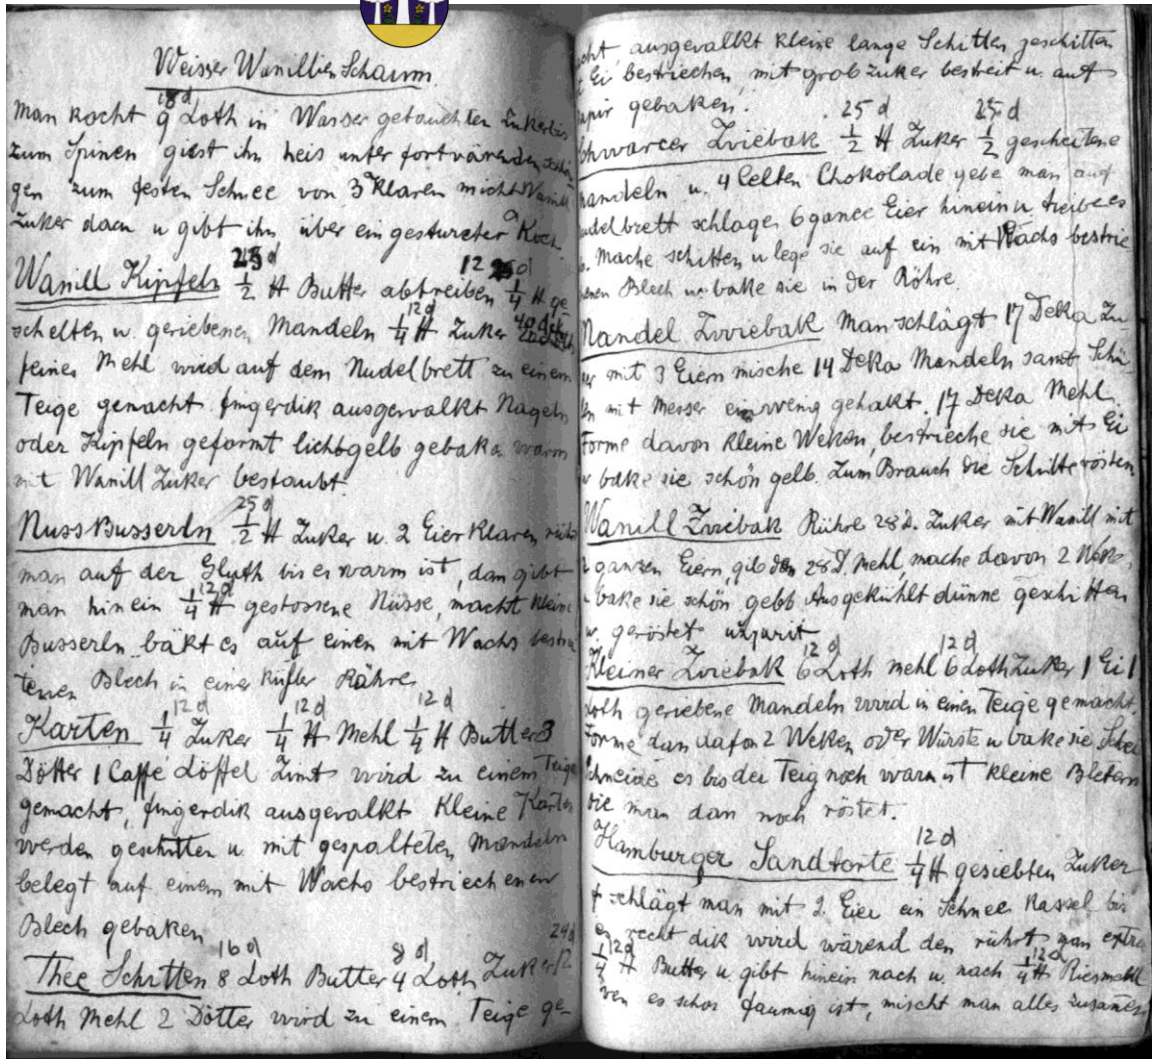 Weisser Wanillien Schaum
18 d
Man kocht 9 Loth in Wasser getauchten Zuker bis
zum Spinen giest ihn heis unter fortwärenden
gen zum festen Schnee von 3 Klaren micht Wanill
Zuker dazu u gibt ihn über ein gesturzter Koch
Wanill Kipfeln 1/2 H Butter abtreiben 1/4 H ge
12 d
schelten u. geriebenen Mandeln 1/4 H Zuker
feines Mehl wird auf dem Nudelbrett zu einem
Teige gemacht fingerdik ausgewalkt Nageln
oder Kipfeln geformt lichtgelb gebaken warm
mit Wanill Zuker bestaubt.
25 d
Nuss Busserln 1/2 H Zuker u. 2 Eier Klaren rührt
man auf der Gluth bis es warm ist, dan gibt
12 d
man hinein 1/4 H gestossene Nüsse, macht kleine
Busserln bäkt es auf einen mit Wachs bestri
tenen Blech in einer kühler Röhre
12 d 12 d 12 d
Karten 1/4 Zuker 1/4 H Mehl 1/4 H Butter 3
Dötter 1 Caffe Löffel Zimt wird zu einem Teige
gemacht, fingerdik ausgevalkt kleine Karten
werden geschitten u. mit gespalteten Mandeln
belegt auf einem mit Wachs bestriechenen
Blech gebaken
16 d 8 d 24 d
Thee Schitten 8 Loth Butter 4 Loth Zuker 12
Loth Mehl 2 Dötter wird zu einem Teige ge-
cht, ausgevalkt kleine lange Schitten geschitten
t Ei bestriechen, mit grobzuker bestreit u. auf
apir gebaken.
25 d 25 d
Schwarcer Zwiebak 1/2 H Zuker 1/2 gescheltene
mandeln u. 4 Celten Chokolade gebe man auf
udelbrett schlage 6 gance Eier hinein u treibe es
Mache schitten u lege sie auf ein mit Wachs bestrie
enen Blech u. bake sie in der Röhre.
Mandel Zwiebak Man schlägt 17 Deka Zu-
er mit 3 Eiern mische 14 Deka Mandeln samt Schä
len mit Messer ein wenig gehakt. 17 Deka Mehl.
Forme davon kleine Weken, bestrieche sie mit Ei
u bake sie schön gelb. Zum Brauch die Schitte rösten
Wanill Zwiebak Rühre 28 D. Zuker mit Wanill mit
ganzen Eiern, gib dan 28 D. Mehl, mache davon 2 Wek
bake sie schön gebb Ausgekühlt dünne geschitten
u. geröstet
12 d 12 d
Kleiner Zwiebak 6 Loth Mehl 6 Loth Zuker 1 Ei 1
Loth geriebene Mandeln wird in einen Teige gemacht.
Forme dan dafon 2 Weken oder Würste u bake sie
Schneide es bis der Teig noch warm ist kleine Bletern
die man dan noch röstet.
12 d
Hamburger Sandtorte 1/4 H gesiebten Zuker
schlägt man mit 2 Eier ein Schnee Kassel bis
es recht dik wird wärend den rührt man extra
12 d 12 d
1/4 H Butter u. gibt hinein nach u. nach 1/4 H Riesmehl
ven es schon faumig ist, mischt man alles zusamen